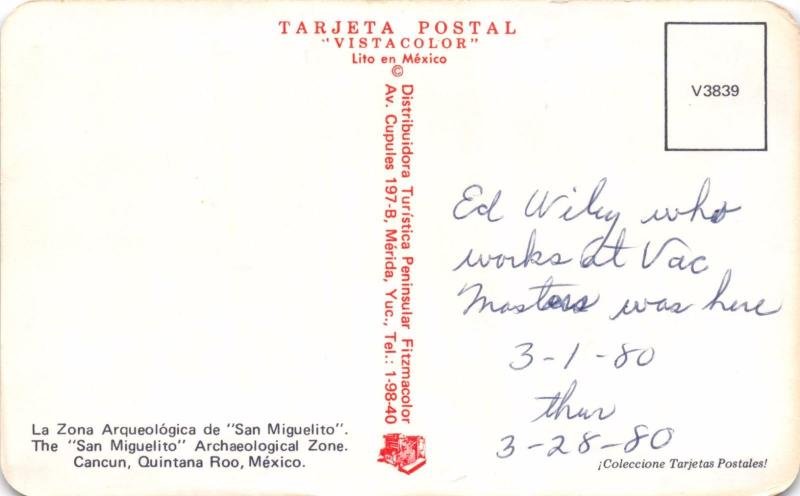 TARJETA POSTAL
"VISTACOLOR"
Lito en México
©
Distribuidora Turística Peninsular Fitzmacolor
Av. Cupules 197-B, Mérida, Yuc., Tel.: 1-98-40
V3839
Ed Wiley who
works at Vac
Masters was here
3-1-80
thur
3-28-80
La Zona Arqueológica de "San Miguelito".
The "San Miguelito" Archaeological Zone.
Cancun, Quintana Roo, México.
¡Coleccione Tarjetas Postales!